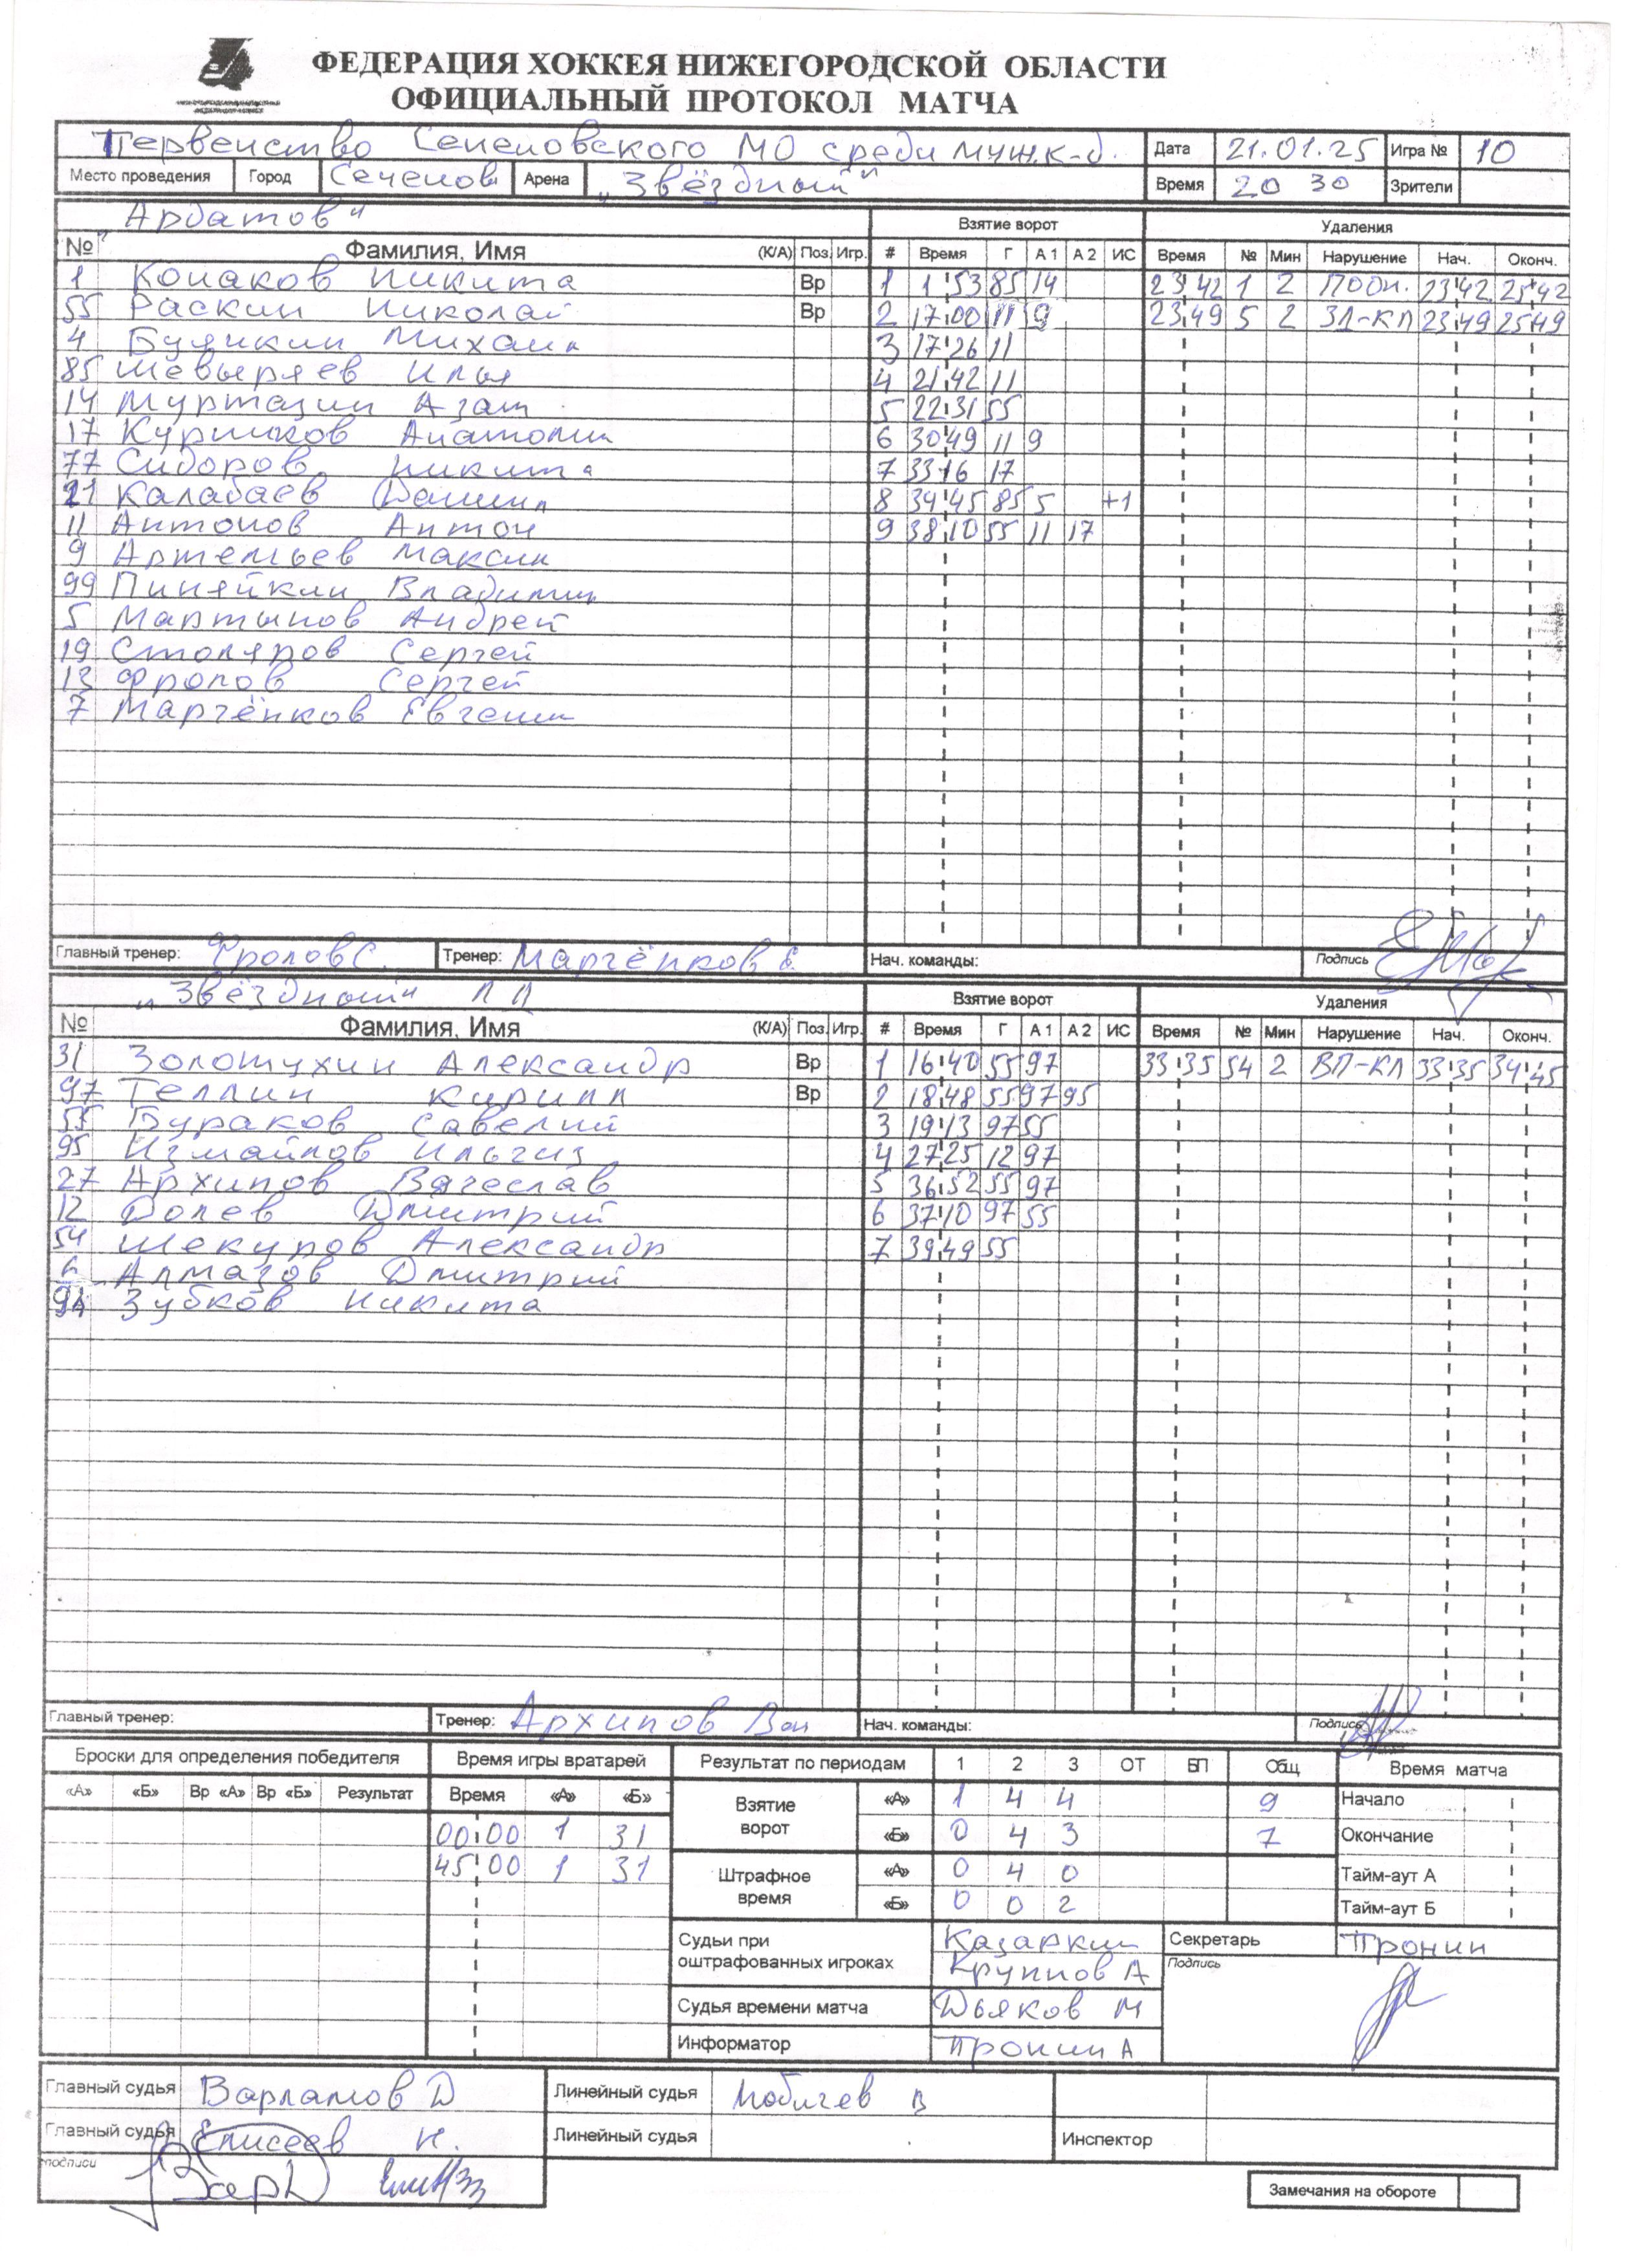 ФЕДЕРАЦИЯ ХОККЕЯ НИЖЕГОРОДСКОЙ ОБЛАСТИ
ОФИЦИАЛЬНЫЙ ПРОТОКОЛ МАТЧА
Первенство Сеченовского МО среди муж. к-д. Дата 21.01.25 Игра № 10
Место проведения Город Сеченово Арена „Звёздный" Время 20 30 Зрители
„Ардатов" Взятие ворот Удаления
№ Фамилия, Имя (К/А) Поз. Игр. # Время Г А 1 А 2 ИС Время № Мин Нарушение Нач. Оконч.
1 Конаков Никита Вр 1 1 53 85 14 23 42 1 2 ПОДН. 23 42 25 42
55 Раскин Николай Вр 2 17 00 11 9 23 49 5 2 ЗД-КЛ 23 49 25 49
4 Буянкин Михаил 3 17 26 11
85 Шевыряев Илья 4 21 42 11
14 Муртазин Азат 5 22 31 55
17 Куршков Анатолий 6 30 49 11 9
77 Сидоров Никита 7 33 16 17
21 Калабаев Даниил 8 34 45 85 5 +1
11 Антонов Антон 9 38 10 55 11 17
9 Артемьев Максим
99 Пиняйкин Владимир
5 Мартынов Андрей
19 Столяров Сергей
13 Фролов Сергей
7 Марчёнков Евгений
Главный тренер: Фролов С. Тренер: Марчёнков Е. Нач. команды: Подпись
„Звёздный" ЛД Взятие ворот Удаления
№ Фамилия, Имя (К/А) Поз. Игр. # Время Г А 1 А 2 ИС Время № Мин Нарушение Нач. Оконч.
31 Золотухин Александр Вр 1 16 40 55 97 33 35 54 2 ВП-КЛ 33 35 34 45
97 Теплин Кирилл Вр 2 18 48 55 97 95
55 Бураков Савелий 3 19 13 97 55
95 Измайлов Ильгиз 4 27 25 12 97
27 Архипов Вячеслав 5 36 52 55 97
12 Долев Дмитрий 6 37 10 97 55
54 Шекуров Александр 7 39 49 55
Алмазов Дмитрий
Зубков Никита
Главный тренер: Тренер: Архипов Нач. команды: Подпись
Броски для определения победителя Время игры вратарей Результат по периодам 1 2 3 ОТ БП Общ Время матча
«А» «Б» Вр «А» Вр «Б» Результат Время «А» «Б» Взятие ворот «А» 1 4 4 9 Начало
00 00 1 31 «Б» 0 4 3 7 Окончание
45 00 1 31 Штрафное время «А» 0 4 0 Тайм-аут А
«Б» 0 0 2 Тайм-аут Б
Судьи при оштрафованных игроках Казаркин Секретарь Пронин
Крупнов А Подпись
Судья времени матча Дьяков М
Информатор Пронин А
Главный судья Варламов Д Линейный судья Мобичев В
Главный судья Елисеев Н. Линейный судья Инспектор
подписи
Замечания на обороте